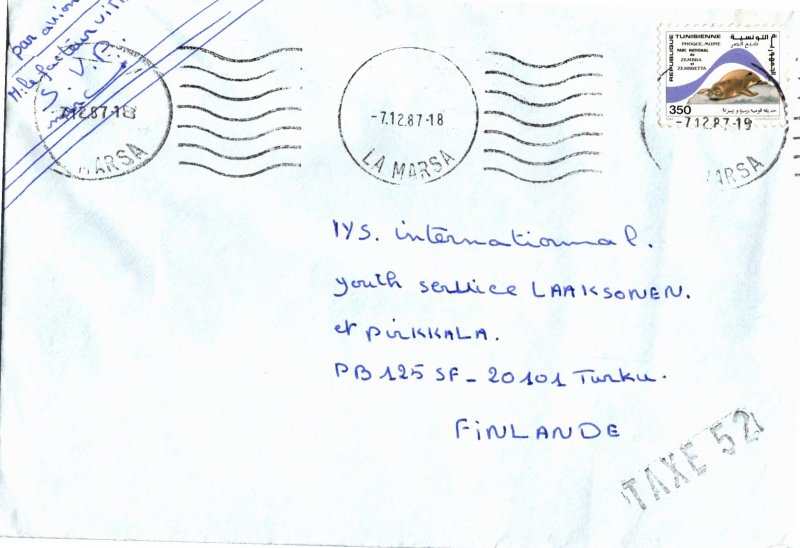 par avion
M. le facteur
S. V. P.
merci
7.12.87-18
MARSA
-7.12.87-18
LA MARSA
REPUBLIQUE TUNISIENNE
التونسية
PHOQUE MOINE
PARC NATIONAL de
ZEMBRA
et
ZEMBRETTA
350
-7.12.87-19
ARSA
IYS. internationnal.
youth serllice LAAKSONEN.
et PiRKKALA.
PB 125 SF - 20101 Turku.
FiNLANDE
TAXE 52